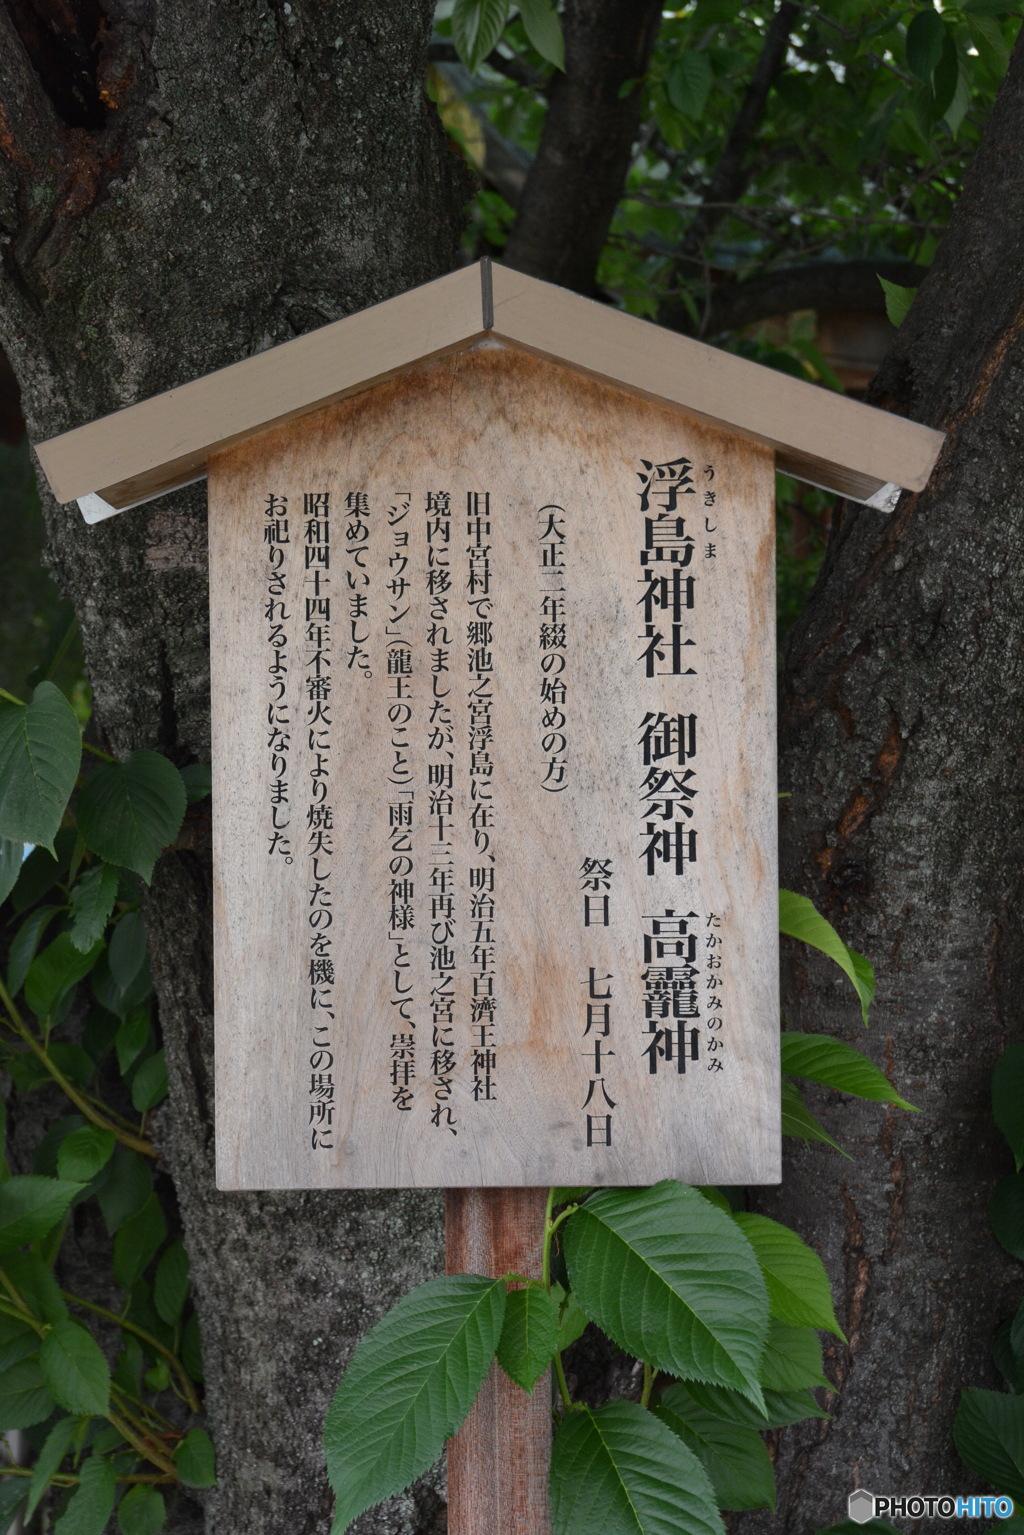 浮島神社　御祭神　高龗神
うきしま
たかおかみのかみ
祭日　七月十八日
（大正二年綴の始めの方）
旧中宮村で郷池之宮浮島に在り、明治五年百濟王神社
境内に移されましたが、明治十三年再び池之宮に移され、
「ジョウサン」（龍王のこと）「雨乞の神様」として、崇拝を
集めていました。
昭和四十四年不審火により焼失したのを機に、この場所に
お祀りされるようになりました。
PHOTOHITO